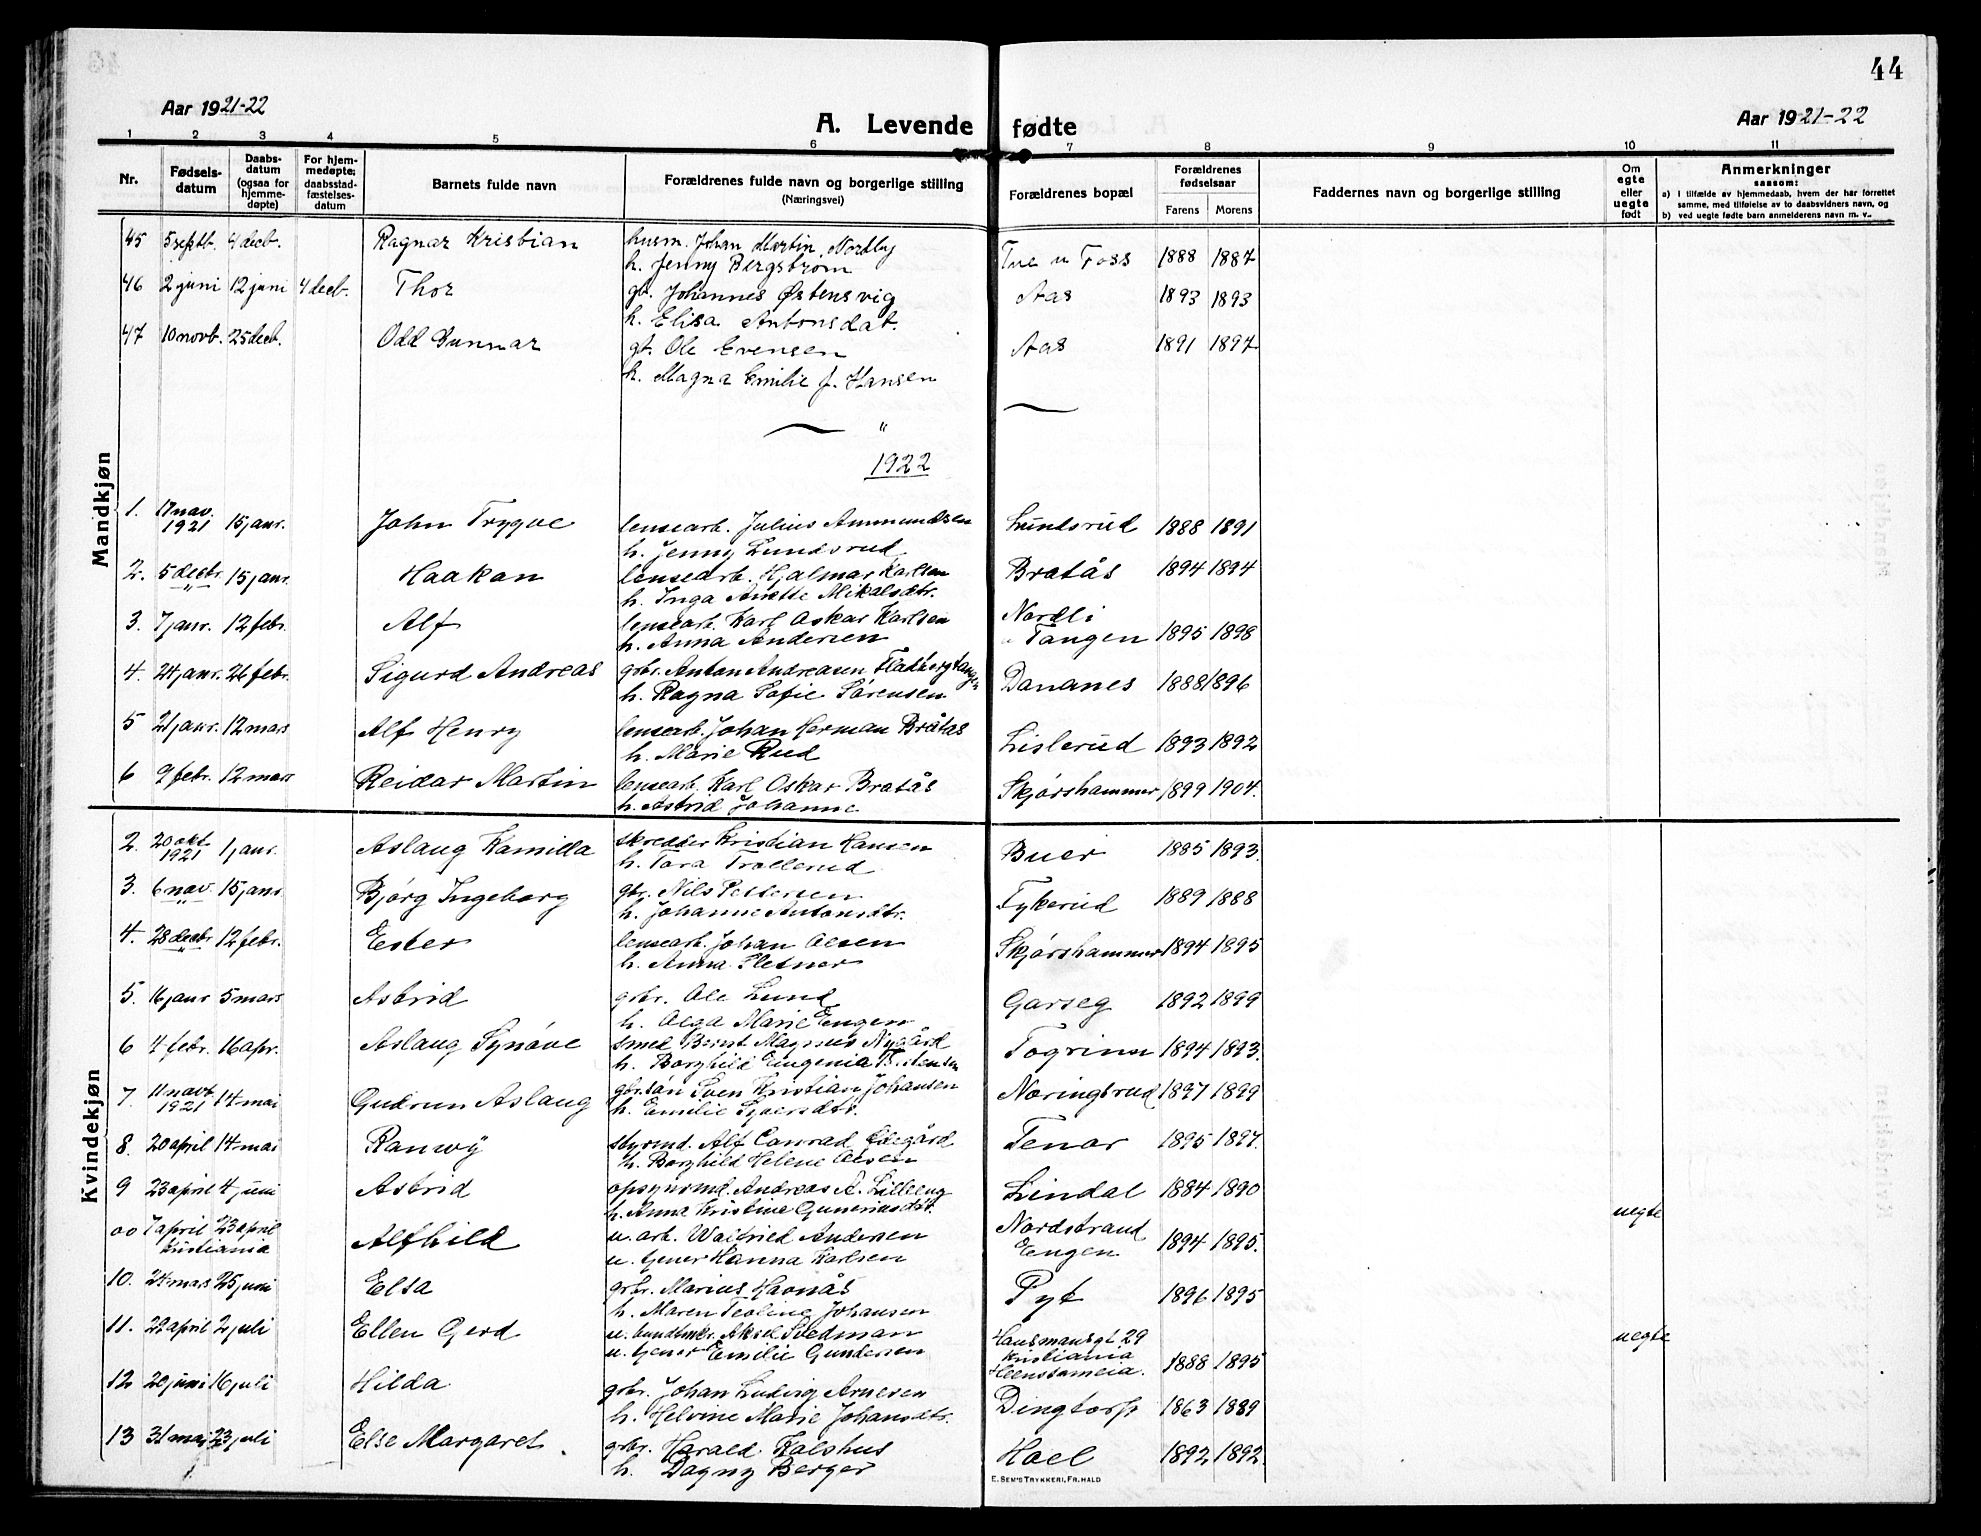 44
Aar 1921-22
A. Levende fødte
Aar 1921-22
1 2 3 4 5 6 7 8 9 10 11
Nr. Fødsels-datum Daabs-datum (ogsaa for hjemme-døpte) For hjem-medøpte; daabsstad-fæstelses-datum Barnets fulde navn Forældrenes fulde navn og borgerlige stilling (Næringsvei) Forældrenes bopæl Forældrenes fødselsaar Farens Morens Faddernes navn og borgerlige stilling Om egte eller uegte født Anmerkninger saasom:
a) I tilfælde av hjemmedaab, hvem der har forrettet samme, med tilføielse av to daabsvidners navn, og
b) ved uegte fødte barn anmelderens navn m. v.
Mandkjøn
45 5 septb. 4 decb. Ragnar Kristian husm. Johan Martin Nordby Tue u Foss 1888 1887
h. Jenny Bergström
46 2 juni 12 juni 4 decb. Thor gb. Johannes Østensvig Aas 1893 1893
h. Elisa Antonsdat.
47 10 novb. 25 decb. Odd Gunnar gt. Ole Evensen Aas 1891 1897
h. Magna Emilie f. Hansen
"
1922
1. 17 nov. 1921 15 janr. John Trygve lensearb. Julius Ammundsen Lundsrud 1888 1891
h. Jenny Lundsrud
2. 5 decbr. " 15 janr. Haakan lensearb. Hjalmar Karlsen Bratås 1894 1894
h. Inga Anette Mikalsdtr.
3. 7 janr. 12 febr. Alf lensearb. Karl Oskar Karlsen Nordli
h. Anna Andersen Tangen 1895 1898
4. 24 janr. 26 febr. Sigurd Andreas grbr. Anton Andreasen Fladbergtangen Dananes 1888 1896
h. Ragna Sofie Sørensen
5 21 janr. 12 mars Alf Henry lensearb. Johan Herman Bråtas Lislerud 1893 1892
h. Marie Rud
6 9 febr. 12 mars Reidar Martin lensearb. Karl Oskar Bratås Skjørshammer 1899 1904.
h. Astrid Johanne
Kvindekjøn
2. 20 okt. 1921 1 janr. Aslaug Kamilla skredder Kristian Hansen Buer 1885 1893.
h. Tora Trollerud
3. 6 nov. " 15 janr. Bjørg Ingeborg gbr. Nils Pettersen Tykerud 1889 1888
h. Johanne Antonsdtr.
4. 28 decbr. " 12 febr. Ester lensearb. Johan Olsen Skjørshammer 1894 1895
h. Anna Pletner
5. 16 janr 5 mars Astrid grbr. Ole Lund Garseg 1892 1899
h. Olga Marie Engen
6 4 febr. 16 apr. Aslaug Synøve smed Bernt Magnus Nygård 1894 1893.
h. Borghild Eugenia
7. 11 novb 1921 14 mai Gudrun Aslaug gbr.søn Sven Kristian Johansen Næringsrud 1897 1899
h. Emilie
8. 20 april 14 mai Ranvøy styrmd. Alf Conrad Ødegård Tenor 1895 1897.
h. Borghild Helene Olsen
9 23 april 4 juni Astrid opsynsmd. Andreas A. Lilleeng Lindal 1884 1890
h. Anna Kristine Guneriusdtr.
00 7 april 23 april Kristiania Alfhild u. arb. Walfried Andersen Nordstrand Engen 1894 1895. uegte
u. tjener Hanna Karlsen
10. 24 mars 25 juni Elsa grbr. Marius Havnås Pyt 1896 1895
h. Maren Teoline Johansen
11. 29 april 2 juli Ellen Gerd u. buntmkr. Aksel Svedman Hausmansgt 29 Kristiania uegte
u. tjener Emilie Gundersen 1888 1895
12 20 juni 16 juli Hilda grbr. Johan Ludvig Arnesen Dingtorp 1863 1889
h. Helvine Marie Johansdtr.
13 31 mai 23 juli Else Margaret. grbr. Harald Kalshus Hoel 1892 1892.
h. Dagny Berger
E. SEM'S TRYKKERI, FR. HALD